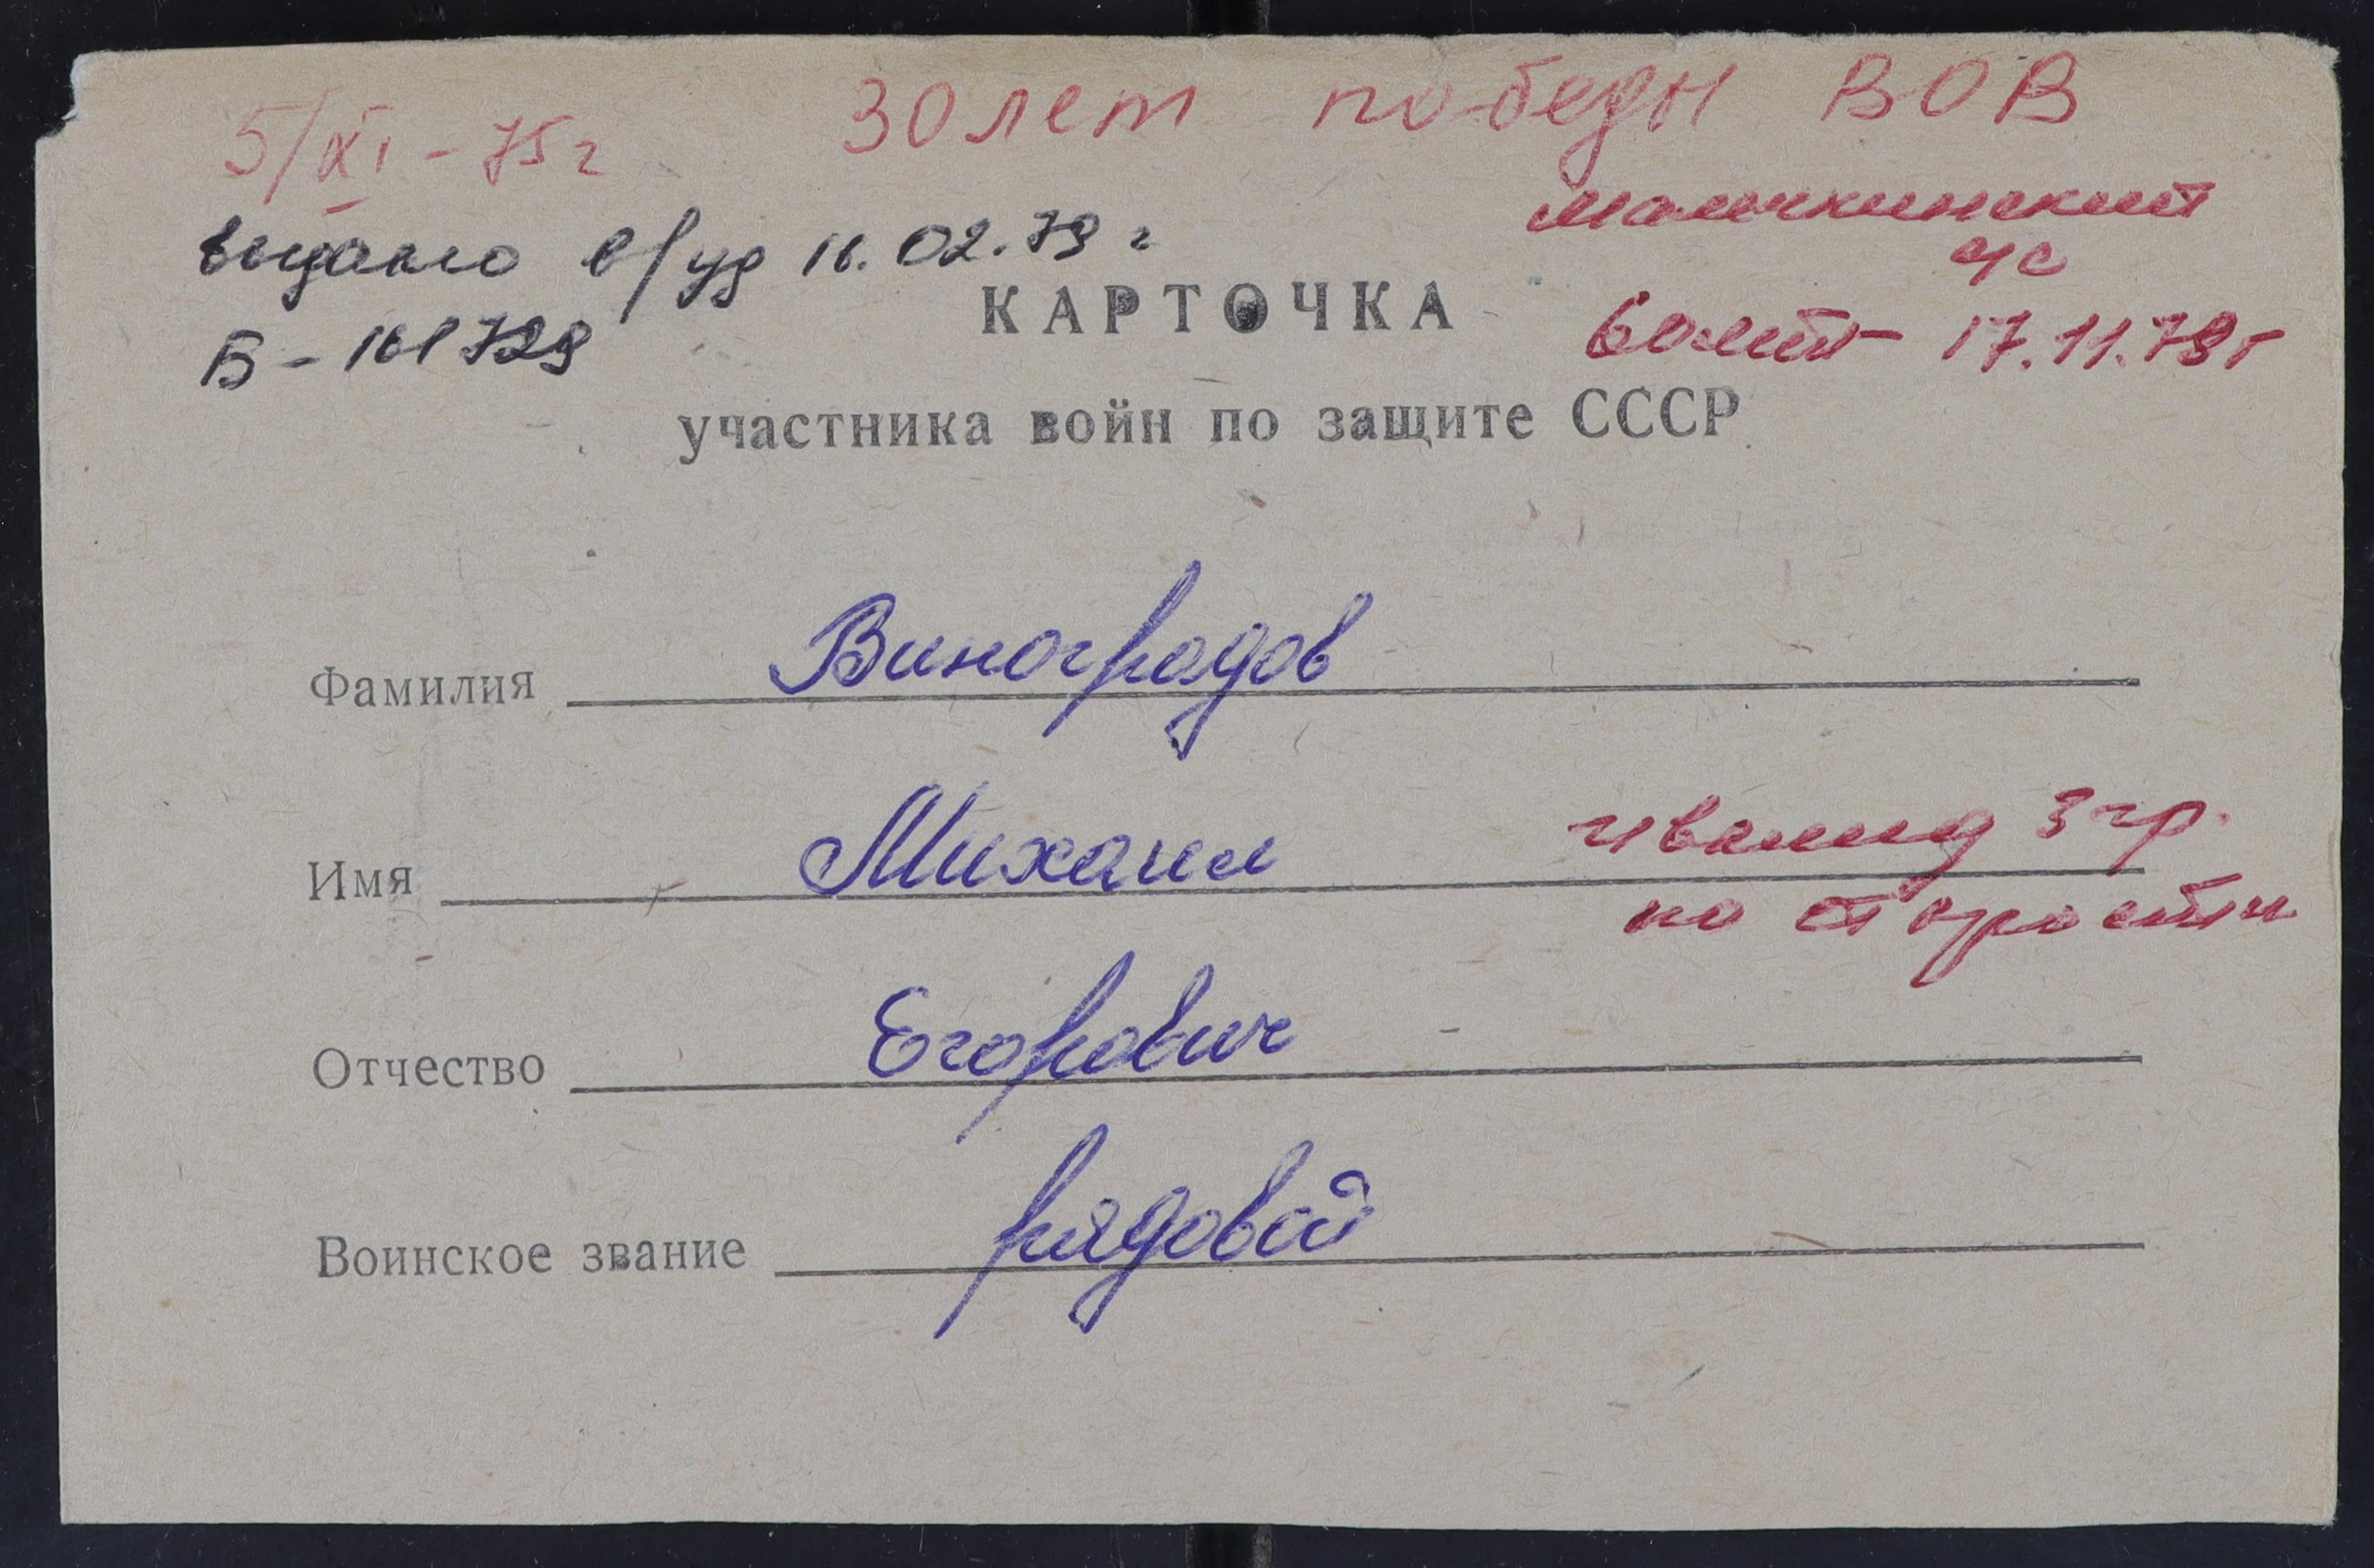 5/XI - 75 г 30 лет победы ВОВ
выдано в/уд 16.02.79 г
с/с
Б - 161729
КАРТОЧКА
60 лет - 17.11.79 г
участника войн по защите СССР
Фамилия Виноградов
Имя Михаил
ивалид 3 гр.
по старости
Отчество Егорович
Воинское звание рядовой